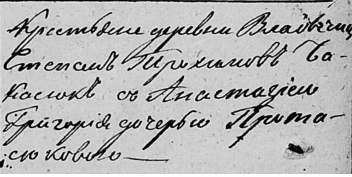 Крестьяне деревни
Степанъ Трохимовъ Ба-
касюкъ съ Анастасіею
Григорія дочерью Прота-
сюковою